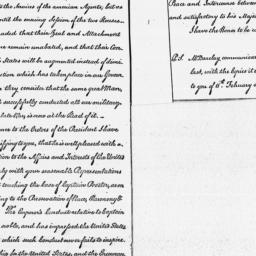 the Service of the american Agents; but we
until the ensuing Session of the two Houses.
uaded that their Zeal and Attachment
ne remain unabated, and that their Con
States will be augmented instead of dimi
uction which has taken place in our Govern
they consider that the same great Man,
successfully conducted all our military
lution is now at the Head of it.
ome to the Orders of the President I have
tifying to you, that he is well pleased with a
tion to the Affairs and Interests of the United
ly with your seasonable Representations
touching the case of Captain Proctor, as
ing to the Preservation of Peace, Harmony &
The Emperor's Conduct relative to Captain
able, and has impressed the United States
which such Conduct never fails to inspire.
this in the United States, and the
Peace and Intercourse between
and satisfactory to his Majest
I have the Honor to be &c
P.S. Mr Barclay communica
last, with the Copies it e
to you of 6th February a